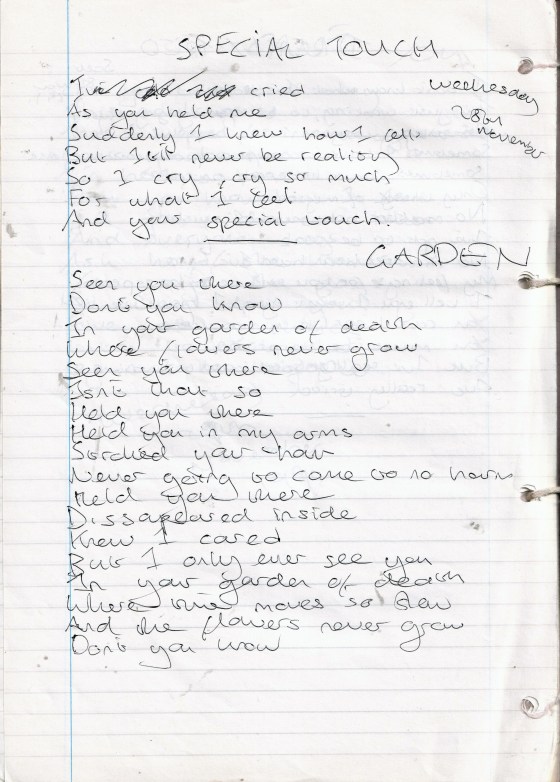 SPECIAL TOUCH
Wednesday
28th
November
I've cried
As you held me
Suddenly I knew how I felt
But it'll never be reality
So I cry, cry so much
For what I feel
And your special touch.
GARDEN
Seen you there
Don't you know
In your garden of death
Where flowers never grow
Seen you there
Isn't that so
Held you there
Held you in my arms
Stroked your hair
Never going to come to no harm
Held you there
Dissapeared inside
Knew I cared
But I only ever see you
In your garden of death
Where time moves so slow
And the flowers never grow
Don't you know